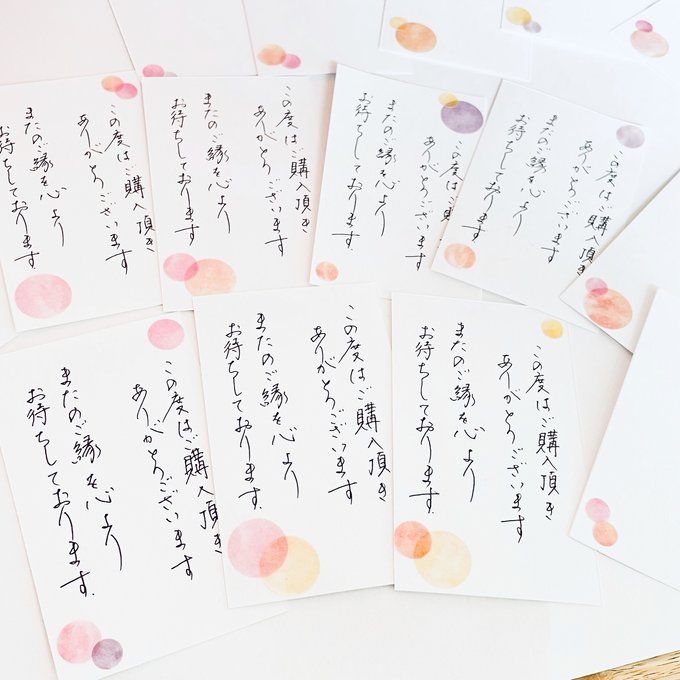 この度はご購入頂き
ありがとうございます
またのご縁を心より
お待ちしております
この度はご購入頂き
ありがとうございます
またのご縁を心より
お待ちしております
この度はご
ありがとうございます
またのご縁を心より
お待ちしております
この度はご購入頂き
ありがとうございます
またのご縁を心より
お待ちしております
この度はご購入頂き
ありがとうございます
またのご縁を心より
お待ちしております.
この度はご購入頂き
ありがとうございます
またのご縁を心より
お待ちしております.
この度はご購入頂き
ありがとうございます
またのご縁を心より
お待ちしております.